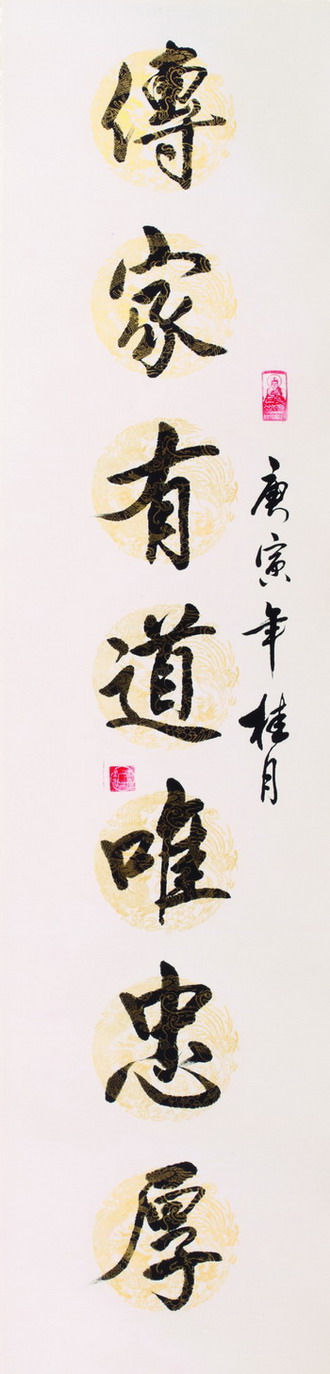 庚寅年桂月
傳家有道唯忠厚